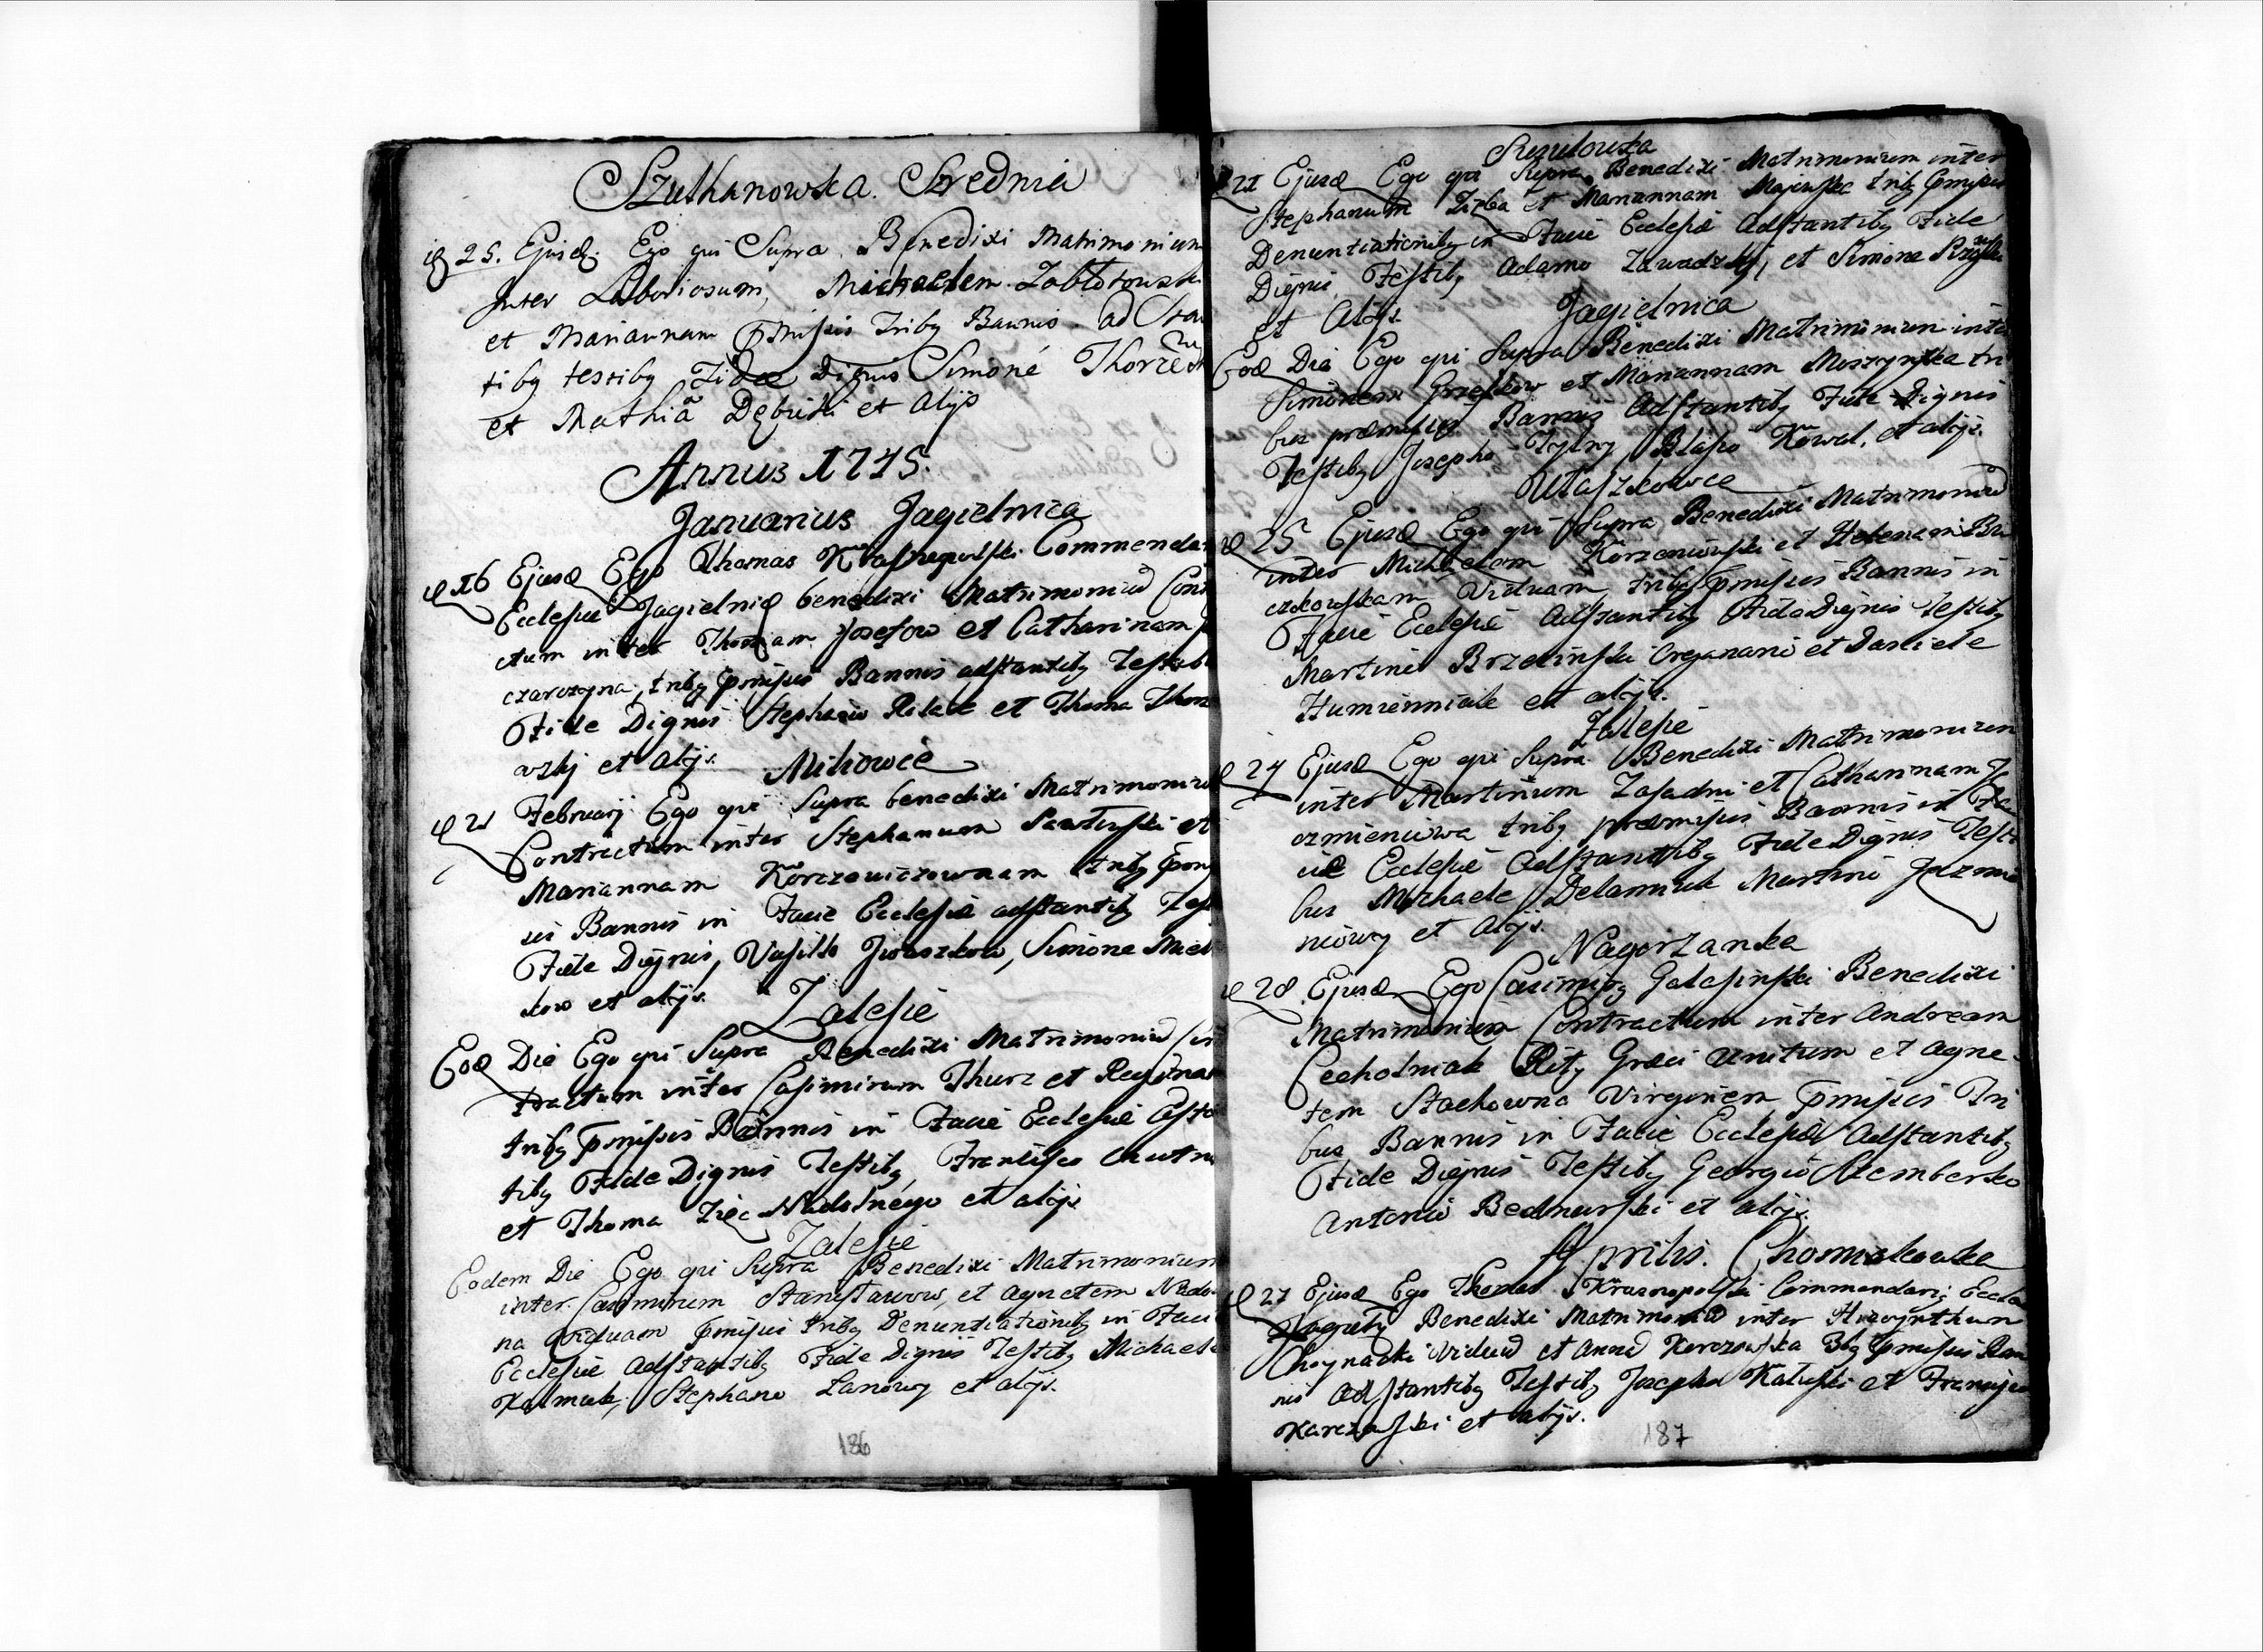 Szuthanowska Srednia
25. Ejusd. Ego qui Supra Benedixi Matrimonium
Inter Laboriosum, Michaelem Zabłotowski
et Mariannam pmissis Tribg Bannis ad Stan
tibg testibg Fidae Dignis Simone
et Mathia Dębicki et Alijs
Annus 1745.
Januarius Jagielnica
16 Ejusd Ego Thomas Krasnopolski Commendar
Ecclesiae Jagielnic benedixi Matrimoniu Contr
ctum inter Thomam Josefow et Catharinam
czarczyna, tribg pmissis Bannis adstantibg Testib
Fide Dignis Stephano Rilak et Thoma Thorz
wskj et Alijs.
Milowce
21 Februarj Ego qui Supra benedixi Matrimoniu
Contractum inter Stephanum Sawluski et
Mariannam Korczowiczownam tribg pmis
sis Bannis in Facie Ecclesiae adstantibg Test
Fide Dignis, Vasilko Iwaszkow, Simone
kow et alijs.
Zalesie
Eod Die Ego qui Supra Benedixi Matrimoniu Con
tractum inter Casimirum Thurz et Reginam
tribg pmissis Bannis in Facie Ecclesiae
tibg Fide Dignis Testibg, Francisco
et Thoma Zięc Nadolnego et alijs
Zalesie
Eodem Die Ego qui Supra Benedixi Matrimonium
inter Casimirum Stanisławow, et Agnetem Nadol
na viduam pmissis tribg Denuntiationibg in Faci
Ecclesiae Adstantibg Fide Dignis Testibg Michaele
Kalmuk, Stephano Łanowy et alijs.
186
21 Ejusd Ego qui Supra Benedixi Matrimonium inter
Stephanum Zięba et Mariannam Majewska tribg pmissis
Denuntiationibg in Facie Ecclesiae Adstantibg Fide
Dignis Testibg Adamo Zawadzkj, et Simone
et Alijs.
Jagielnica
Eod Die Ego qui Supra Benedixi Matrimonium inter
Simonem Grzeskow et Mariannam Moszynska tri
bus praemissis Bannis Adstantibg Fide Dignis
Testibg Josepho Tylny Błasio Kowal, et alijs.
Ułaszkowce
25 Ejusd Ego qui Supra Benedixi Matrimoniu
inter Michaelem Korzeniowski et Helenam Bu
czkowskam Viduam, tribg pmissis Bannis in
Facie Ecclesiae Adstantibg Fide Dignis Testibg
Martino Brzezinski Organario et Daniele
Humienniak et alijs.
Zalesie
24 Ejusd Ego qui Supra Benedixi Matrimonium
inter Martinum Zasadni et Catharinam Ja
czmieniowa tribg praemissis Bannis in Fa
cie Ecclesiae Adstantibg Fide Dignis Testi
bus Michaele Delamiuk Martino Jaczmie
niowy et Alijs.
Nagorzanka
28 Ejusd Ego Casimirg Galesinski Benedixi
Matrimonium Contractum inter Andream
Cecholniak Ritg Graeci Unitum et Agne
tem Stachowna Virginem pmissis Tri
bus Bannis in Facie Ecclesiae Adstantibg
Fide Dignis Testibg Georgio Stembersko
Antonio Bednarski et alijs.
Aprilis. Chomiakowka
27 Ejusd Ego Thomas Krasnopolski Commendarig Eccla
Benedixi Matrimoniu inter Hiacynthum
Choynacki Viduu et Anna Korczowska pmissis Ban
nis Adstantibg Testibg Josepho Kaluski et Francisco
Karczewski et alijs.
187